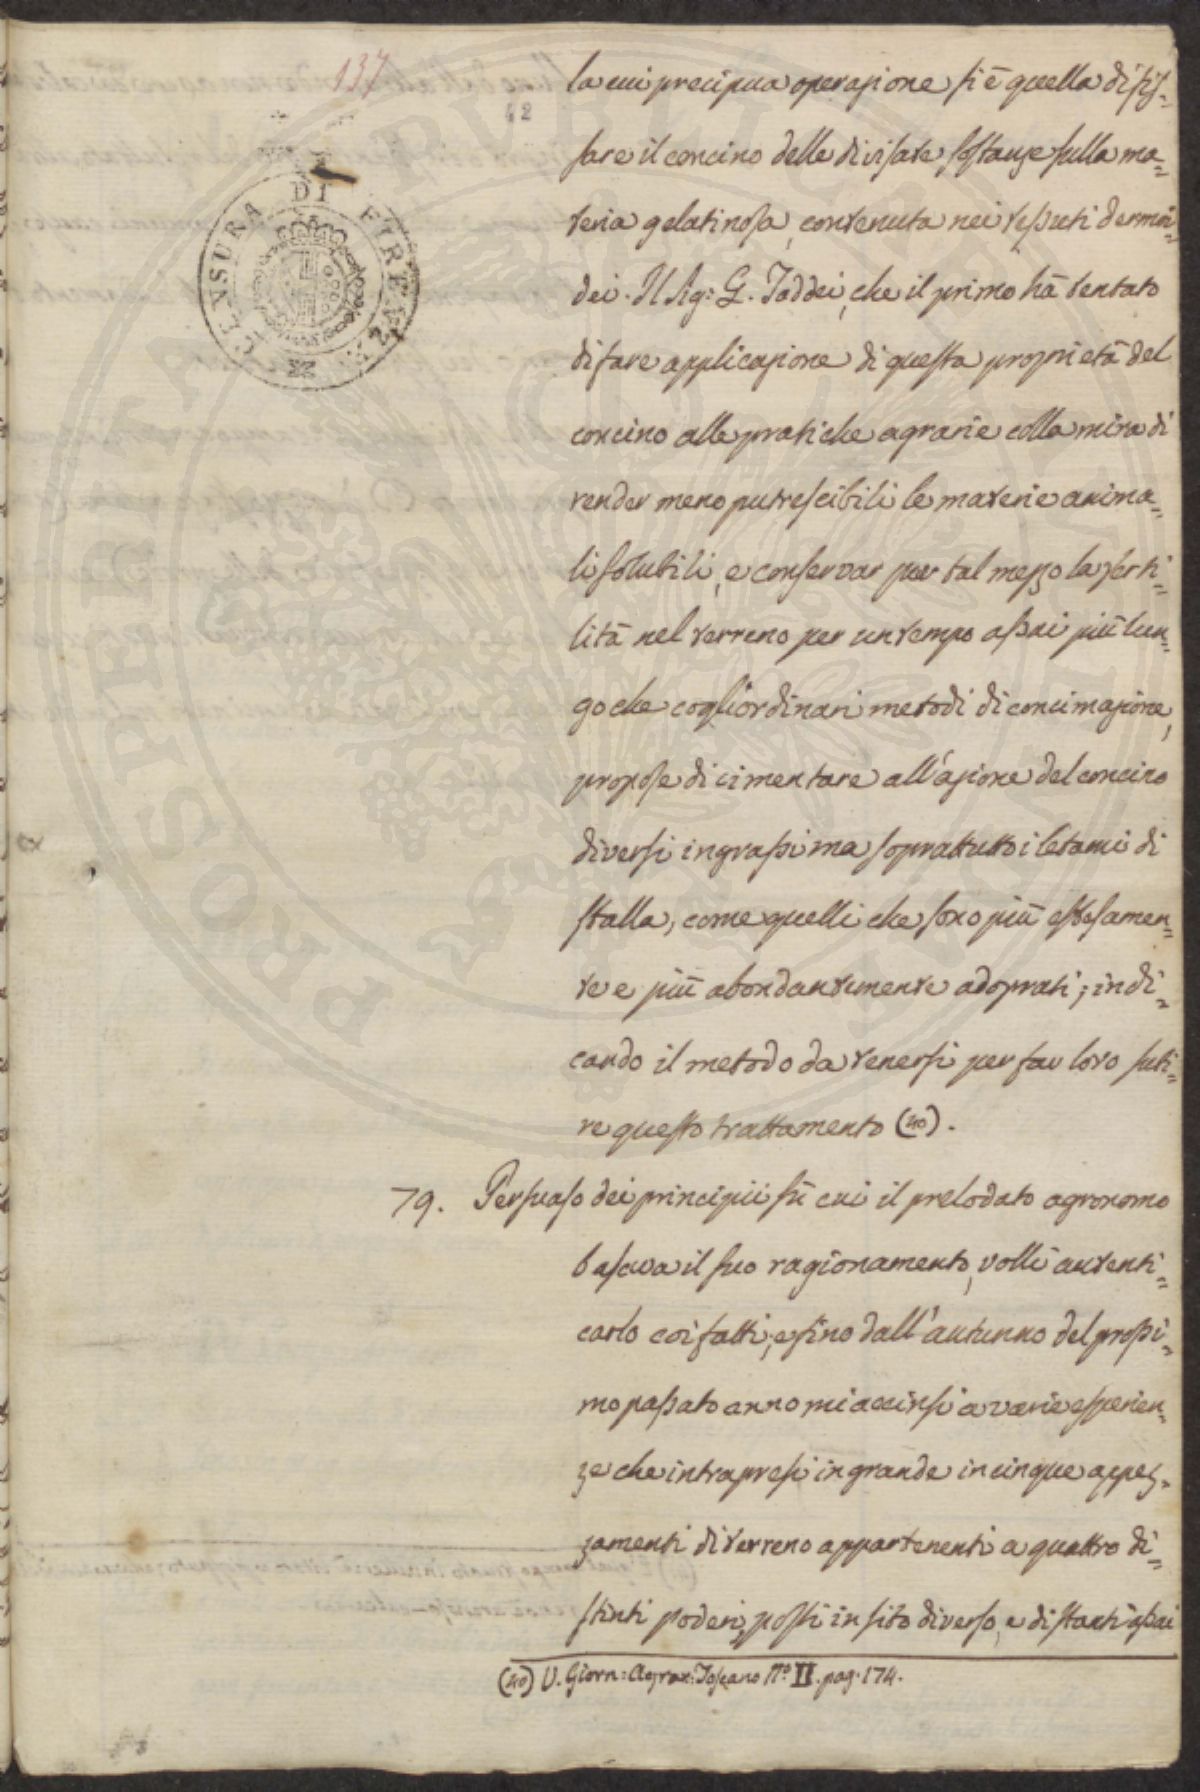 137
42
CENSURA DI FIRENZE
la cui precipua operazione si è quella di fis=
sare il concino delle divisate sostanze sulla ma=
teria gelatinosa, contenuta nei tessuti dermoi=
dei. Il Sig: G. Taddei, che il primo hà tentato
di fare applicazione di questa proprietà del
concino alle pratiche agrarie colla mira di
render meno putrescibili le materie anima=
li solubili, e conservar per tal mezzo la ferti=
lità nel terreno per un tempo assai più lun=
go che cogli ordinari metodi di concimazione,
propose di cimentare all'azione del concino
diversi ingrassi ma soprattutto i letami di
stalla, come quelli che sono più estesamen=
te e più abondantemente adoprati; indi=
cando il metodo da tenersi per far loro subi=
re questo trattamento (40).
79. Persuaso dei principii sù cui il prelodato agronomo
basava il suo ragionamento, volli autenti=
carlo coi fatti; e fino dall'autunno del prossi=
mo passato anno mi accinsi a varie esperien=
ze che intrapresi in grande in cinque appez=
zamenti di terreno appartenenti a quattro di=
stinti poderi, posti in sito diverso, e distanti assai
(40) V. Giorn: Agrar: Toscano N.o II. pag. 174.
PROSPERITATI PUBLICAE AUGENDAE